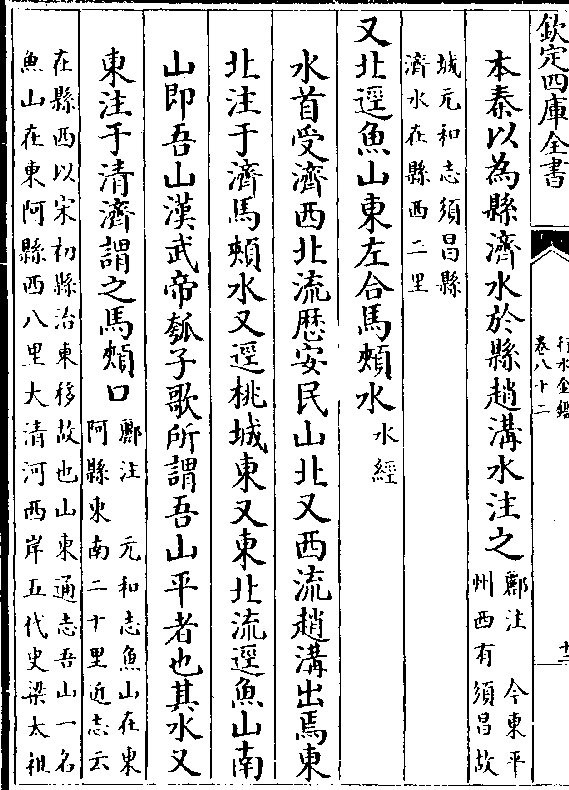 欽定四庫全書
行水金鑑
卷八十二
十三
本秦以為縣濟水於縣趙溝水注之
酈注　今東平
州西有須昌故
城元和志須昌縣
濟水在縣西二里
又北逕魚山東左合馬頰水
水經
水首受濟西北流歷安民山北又西流趙溝出焉東
北注于濟馬頰水又逕桃城東又東北流逕魚山南
山即吾山漢武帝瓠子歌所謂吾山平者也其水又
東注于清濟謂之馬頰口
酈注　元和志魚山在東
阿縣東南二十里近志云
在縣西以宋初縣治東移故也山東通志吾山一名
魚山在東阿縣西八里大清河西岸五代史梁太祖